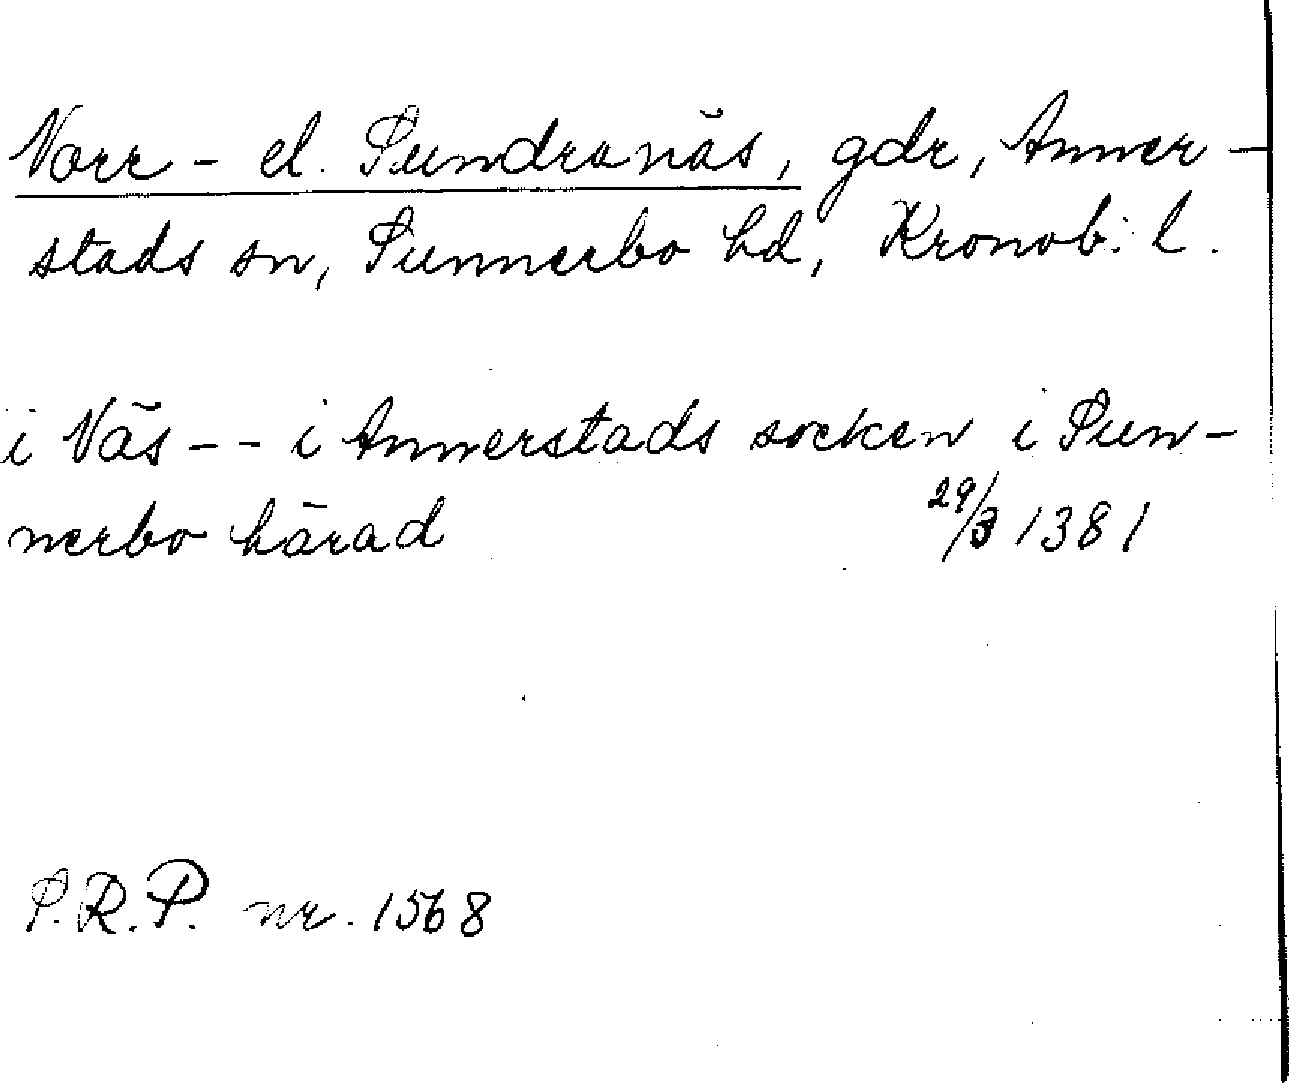 Norr- el. Sundranäs, gdr, Anner-
stads sn, Sunnerbo hd, Kronob. l.
i Näs -- i Annerstads socken i Sun-
nerbo härad 29/3 1381
S.R.P. nr. 1568